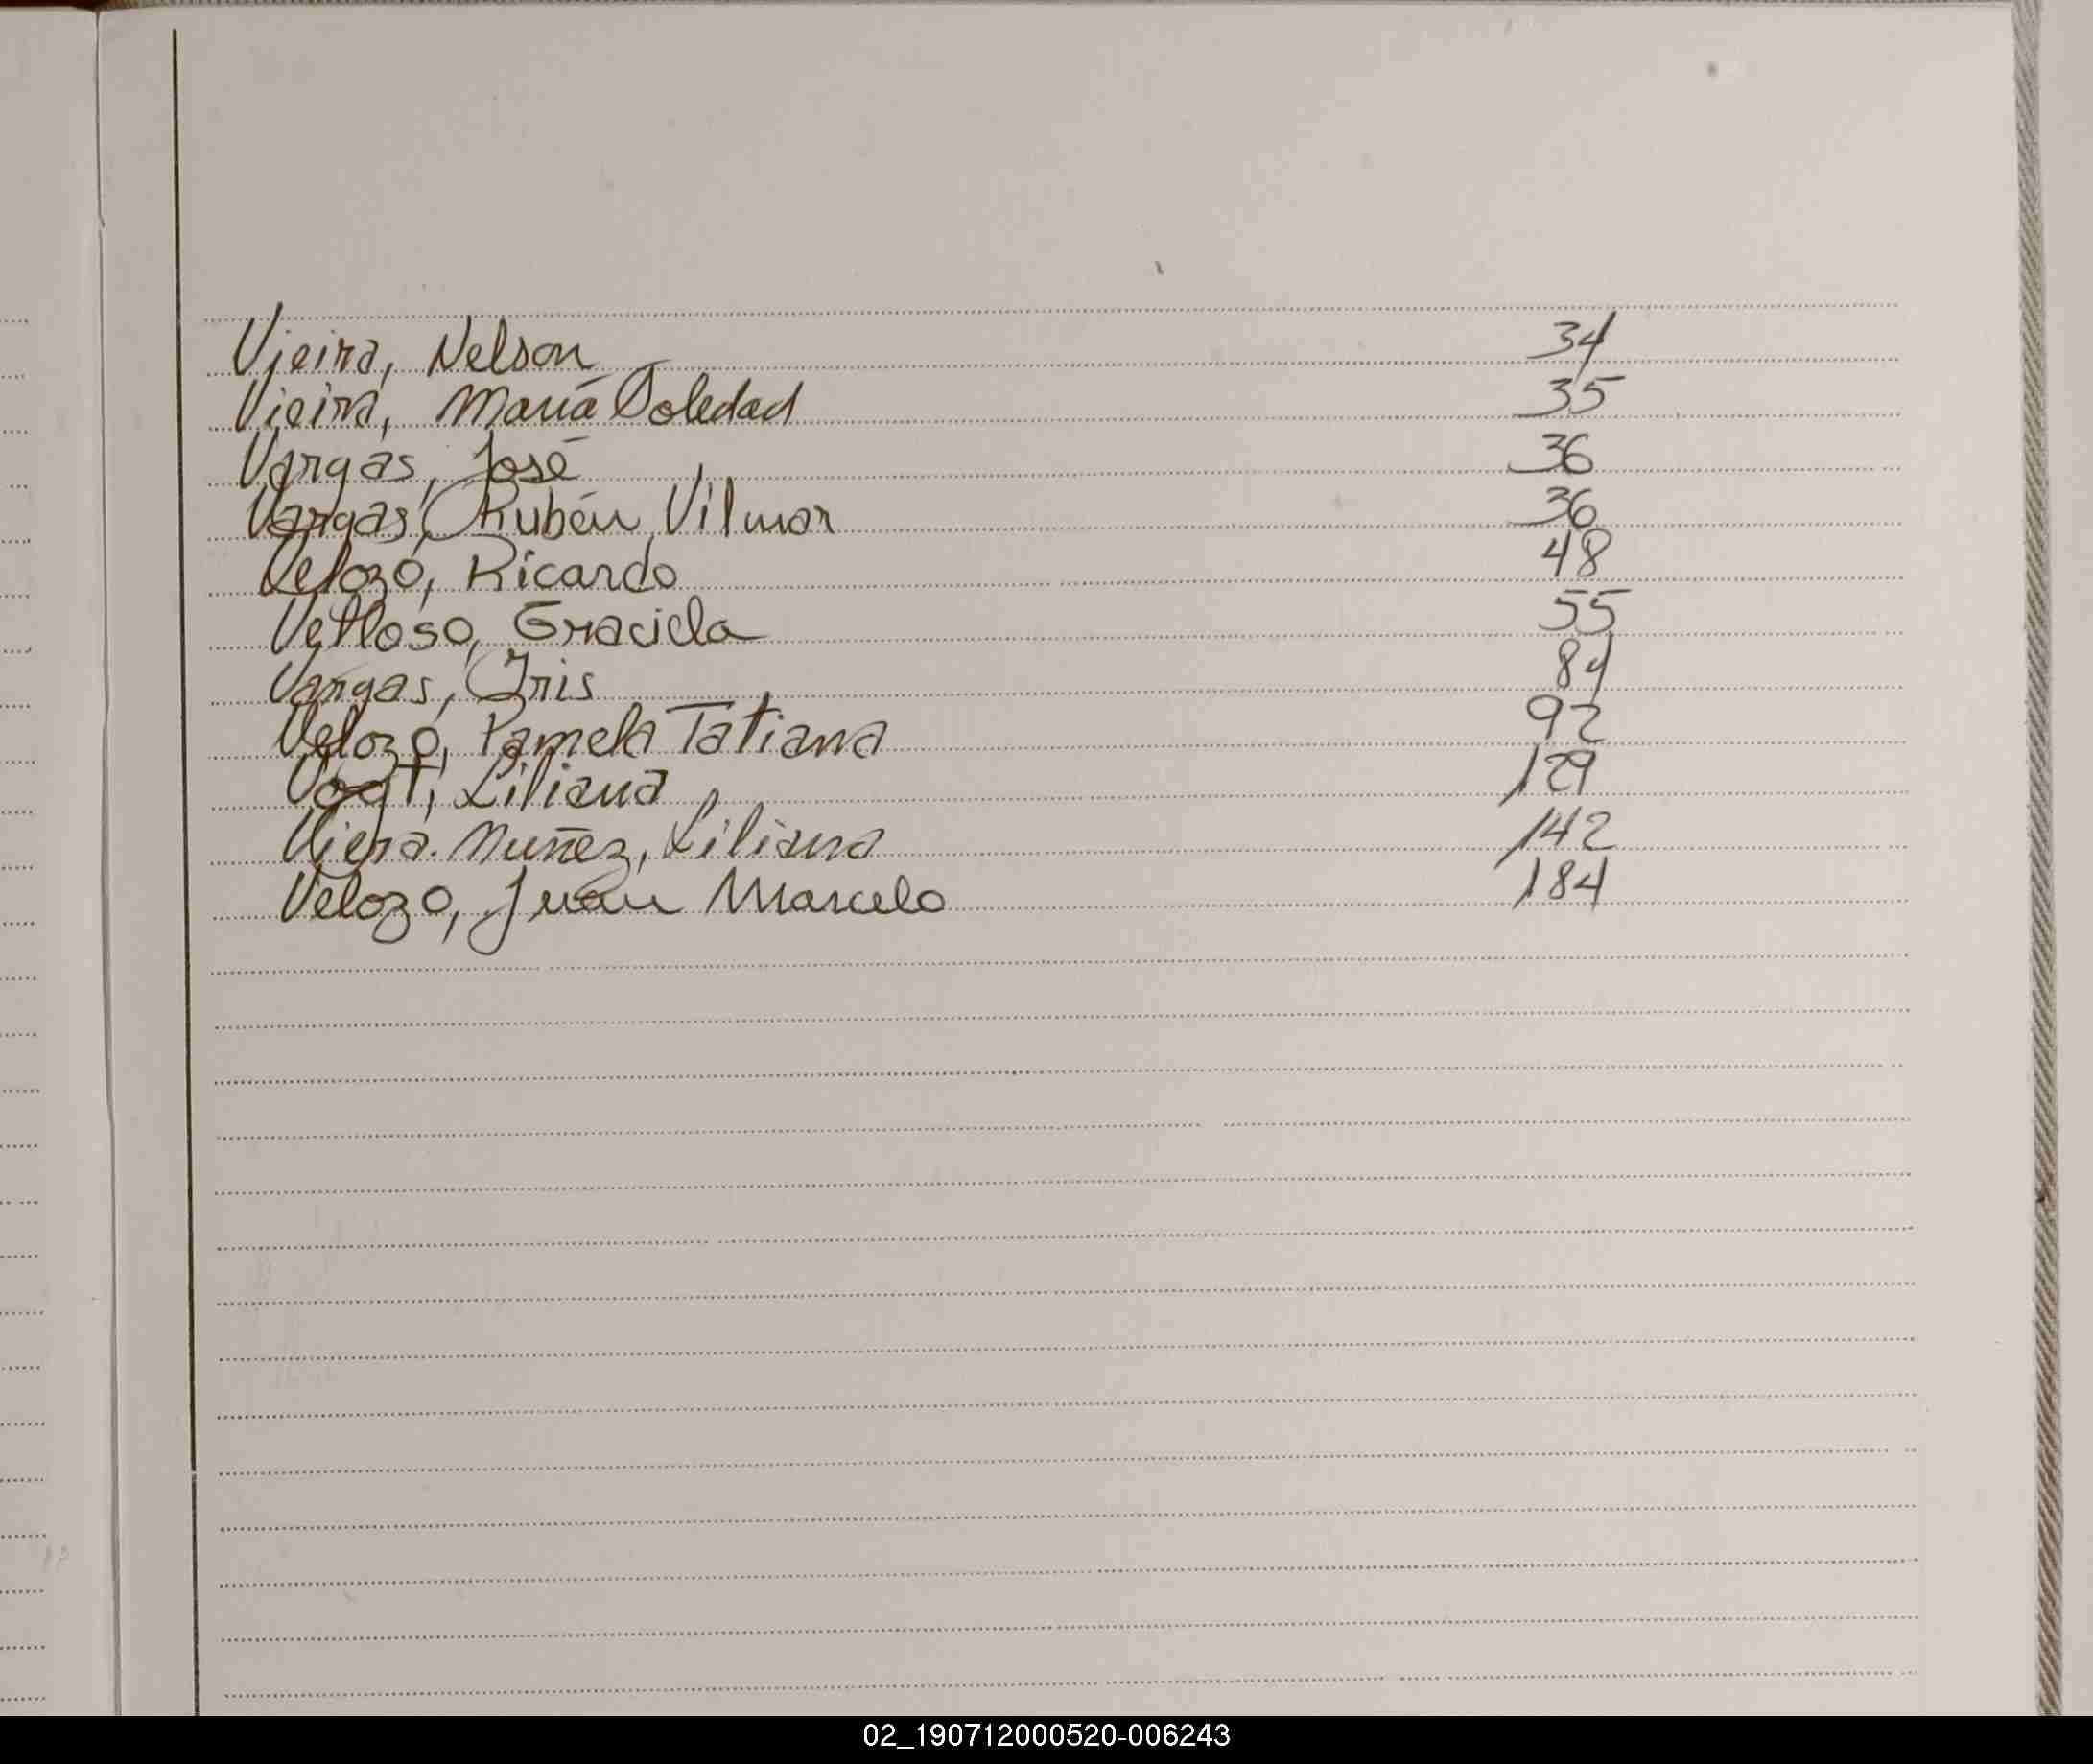 Vieira, Nelson 34
Vieira, María Soledad 35
Vargas, José 36
Vargas, Rubén Vilmar 36
Velozo, Ricardo 48
Velloso, Graciela 55
Vargas, Iris 84
Velozo, Pamela Tatiana 92
Vogt, Liliana 129
Viera Nuñez, Liliana 142
Velozo, Juan Marcelo 184
02_190712000520-006243